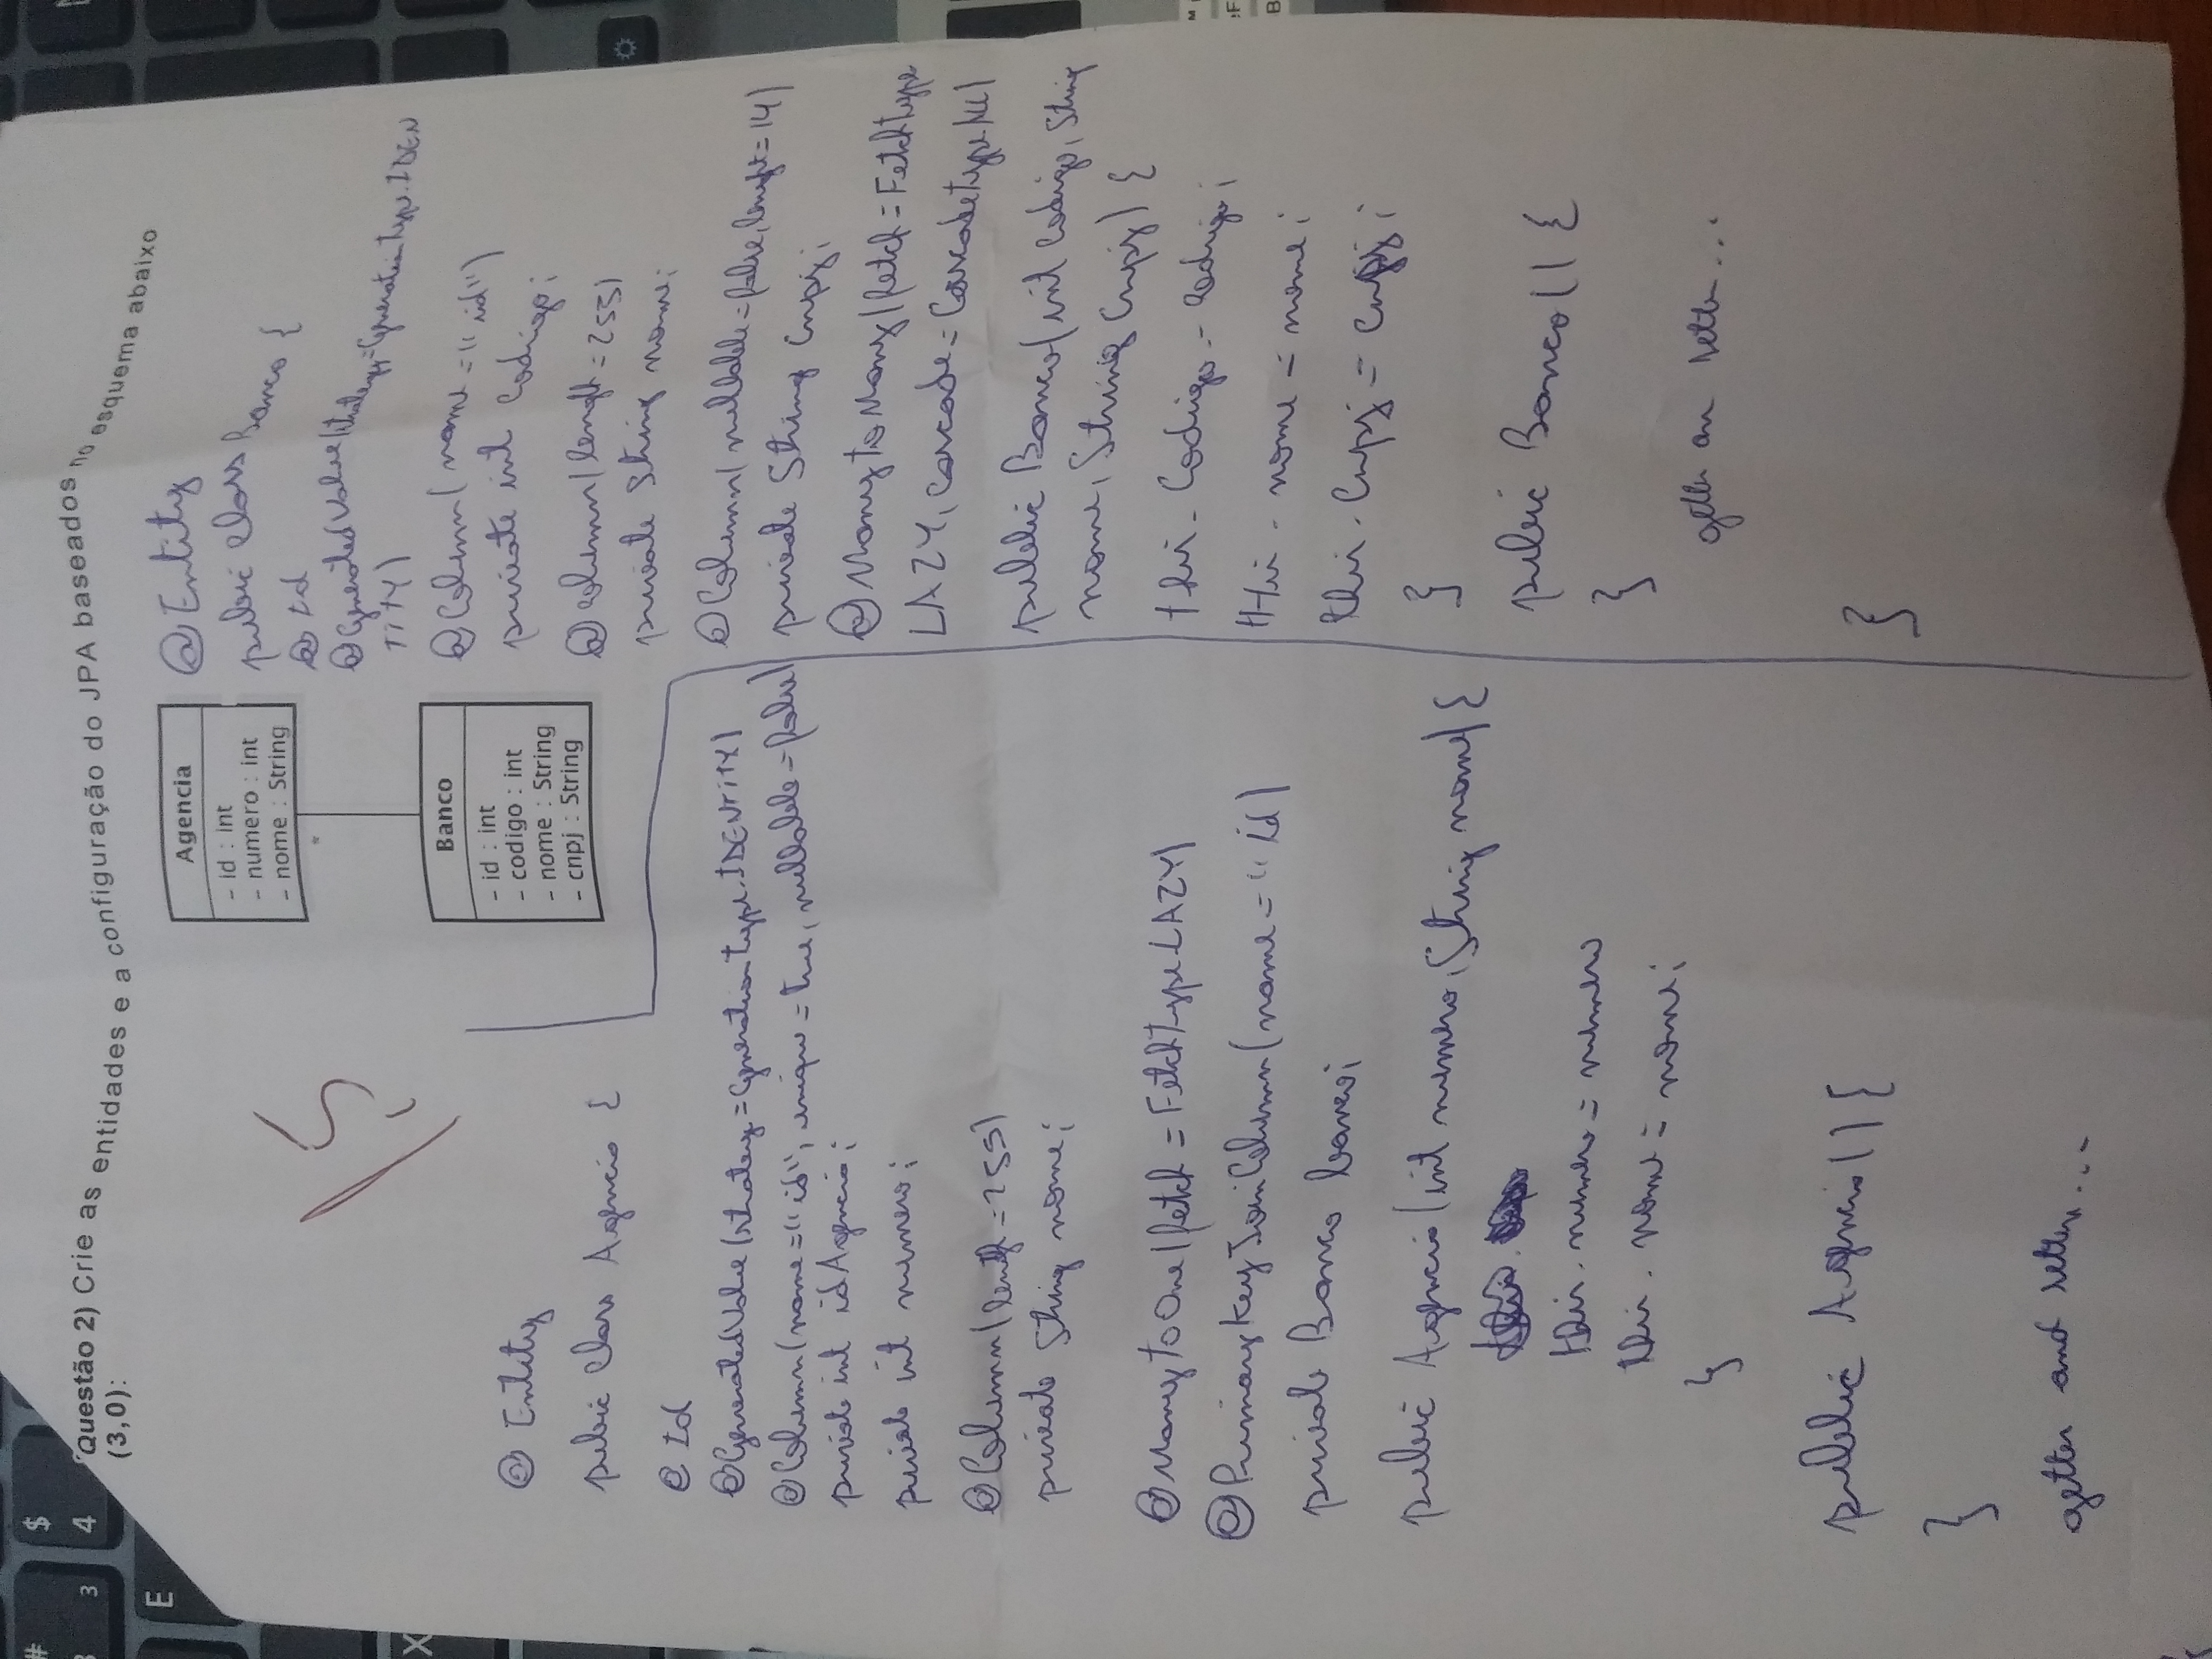 Questão 2) Crie as entidades e a configuração do JPA baseados no esquema abaixo
(3,0):
Agencia
- id : int
- numero : int
- nome : String
*
Banco
- id : int
- codigo : int
- nome : String
- cnpj : String
1,5
@ Entity
public class Agencia {
@ Id
@GeneratedValue(strategy=GenerationType.IDENTITY)
@Column(name="id", unique=true, nullable=false)
private int idAgencia;
private int numero;
@Column(length=255)
private String nome;
@ManyToOne(fetch=FetchType.LAZY)
@PrimaryKeyJoinColumn(name="id)
private Banco banco;
public Agencia(int numero, String nome) {
this.numero=numero
this.nome=nome;
}
public Agencia() {
}
getter and setter...
@Entity
public class Banco {
@ Id
@GeneratedValue(strategy=GenerationType.IDEN
TITY)
@Column(name="id")
private int codigo;
@column(length=255)
private String nome;
@Column(nullable=false, lenght=14)
private String cnpj;
@ManyToMany(fetch=FetchType
LAZY, cascade=CascadeType.All)
public Banco(int codigo, String
nome, String cnpj) {
this.codigo=codigo;
this.nome=nome;
this.cnpj=cnpj;
}
public Banco() {
}
getter an setter...
}
$
4
3
#
E
X